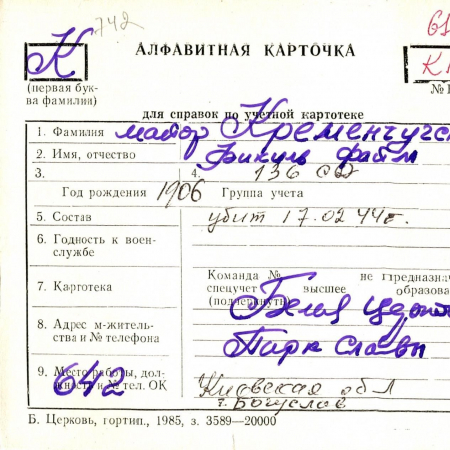 742
К
АЛФАВИТНАЯ КАРТОЧКА
61
К
(первая бук-
ва фамилии)
№
для справок по учетной картотеке
1. Фамилия майор Кременчугс
2. Имя, отчество Файл
3. 4. 136 сд
Год рождения 1906 Группа учета
5. Состав убит 17.02 44г.
6. Годность к воен-
службе
7. Картотека
Команда № не предназна
спецучет высшее образова
(подчеркнуть) Белая Церк
8. Адрес м-житель-
ства и № телефона
Парк Славы
9. Место работы, дол-
жность и № тел. ОК
642
Киевская обл
г. Богуслав
Б. Церковь, гортип., 1985, з. 3589—20000